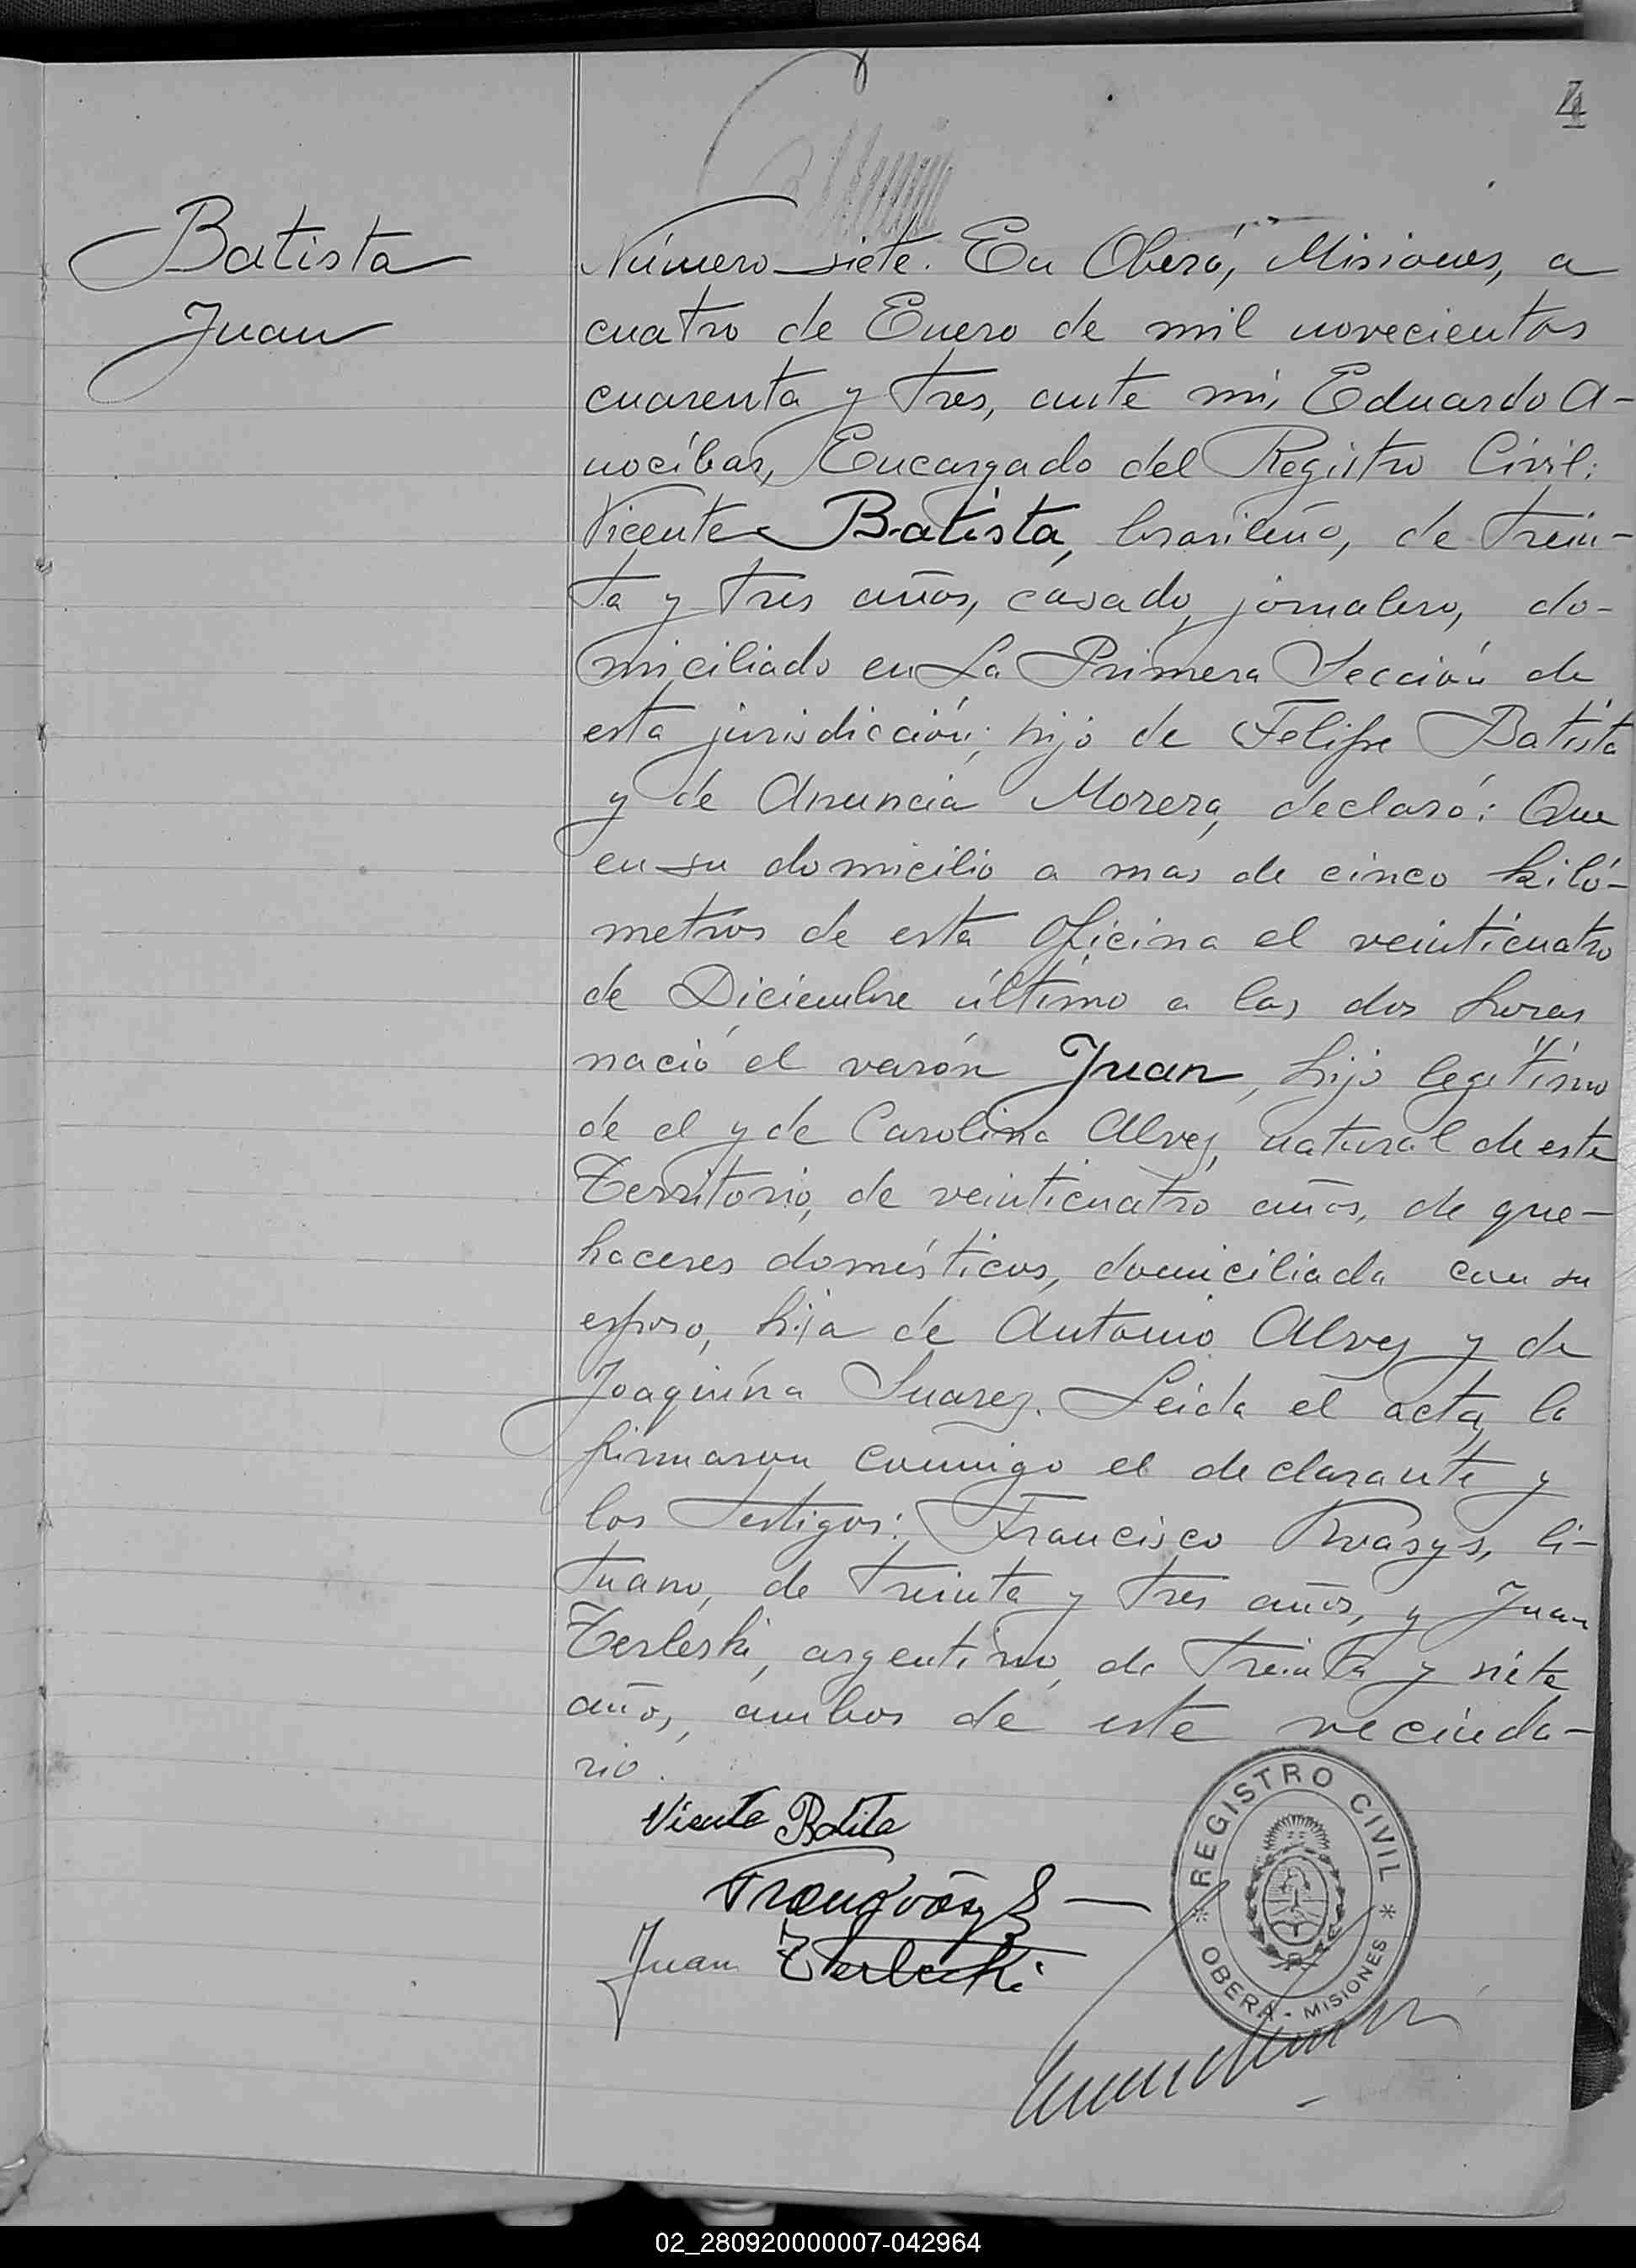 4
Batista
Juan
Número siete. En Oberá, Misiones, a
cuatro de Enero de mil novecientos
cuarenta y tres, ante mi, Eduardo A-
nocíbar, Encargado del Registro Civil:
Vicente Batista, brasileño, de trein-
ta y tres años, casado, jornalero, do-
miciliado en La Primera Sección de
esta jurisdicción; hijo de Felipe Batista
y de Anuncia Morera, declaró: Que
en su domicilio a mas de cinco kiló-
metros de esta Oficina el veinticuatro
de Diciembre último a las dos horas
nació el varón Juan, hijo legítimo
de el y de Carolina Alvez, natural de este
Territorio, de veinticuatro años, de que-
haceres domésticos, domiciliada con su
esposo, hija de Antonio Alvez y de
Joaquina Suarez. Leida el acta, la
firmaron conmigo el declarante y
los testigos: Francisco Kvasys, li-
tuano, de treinta y tres años, y Juan
Terleski, argentino, de treinta y siete
años, ambos de este vecinda-
rio.
Vicente Batita
Juan Terlecki
REGISTRO CIVIL
* OBERA - MISIONES *
02_280920000007-042964